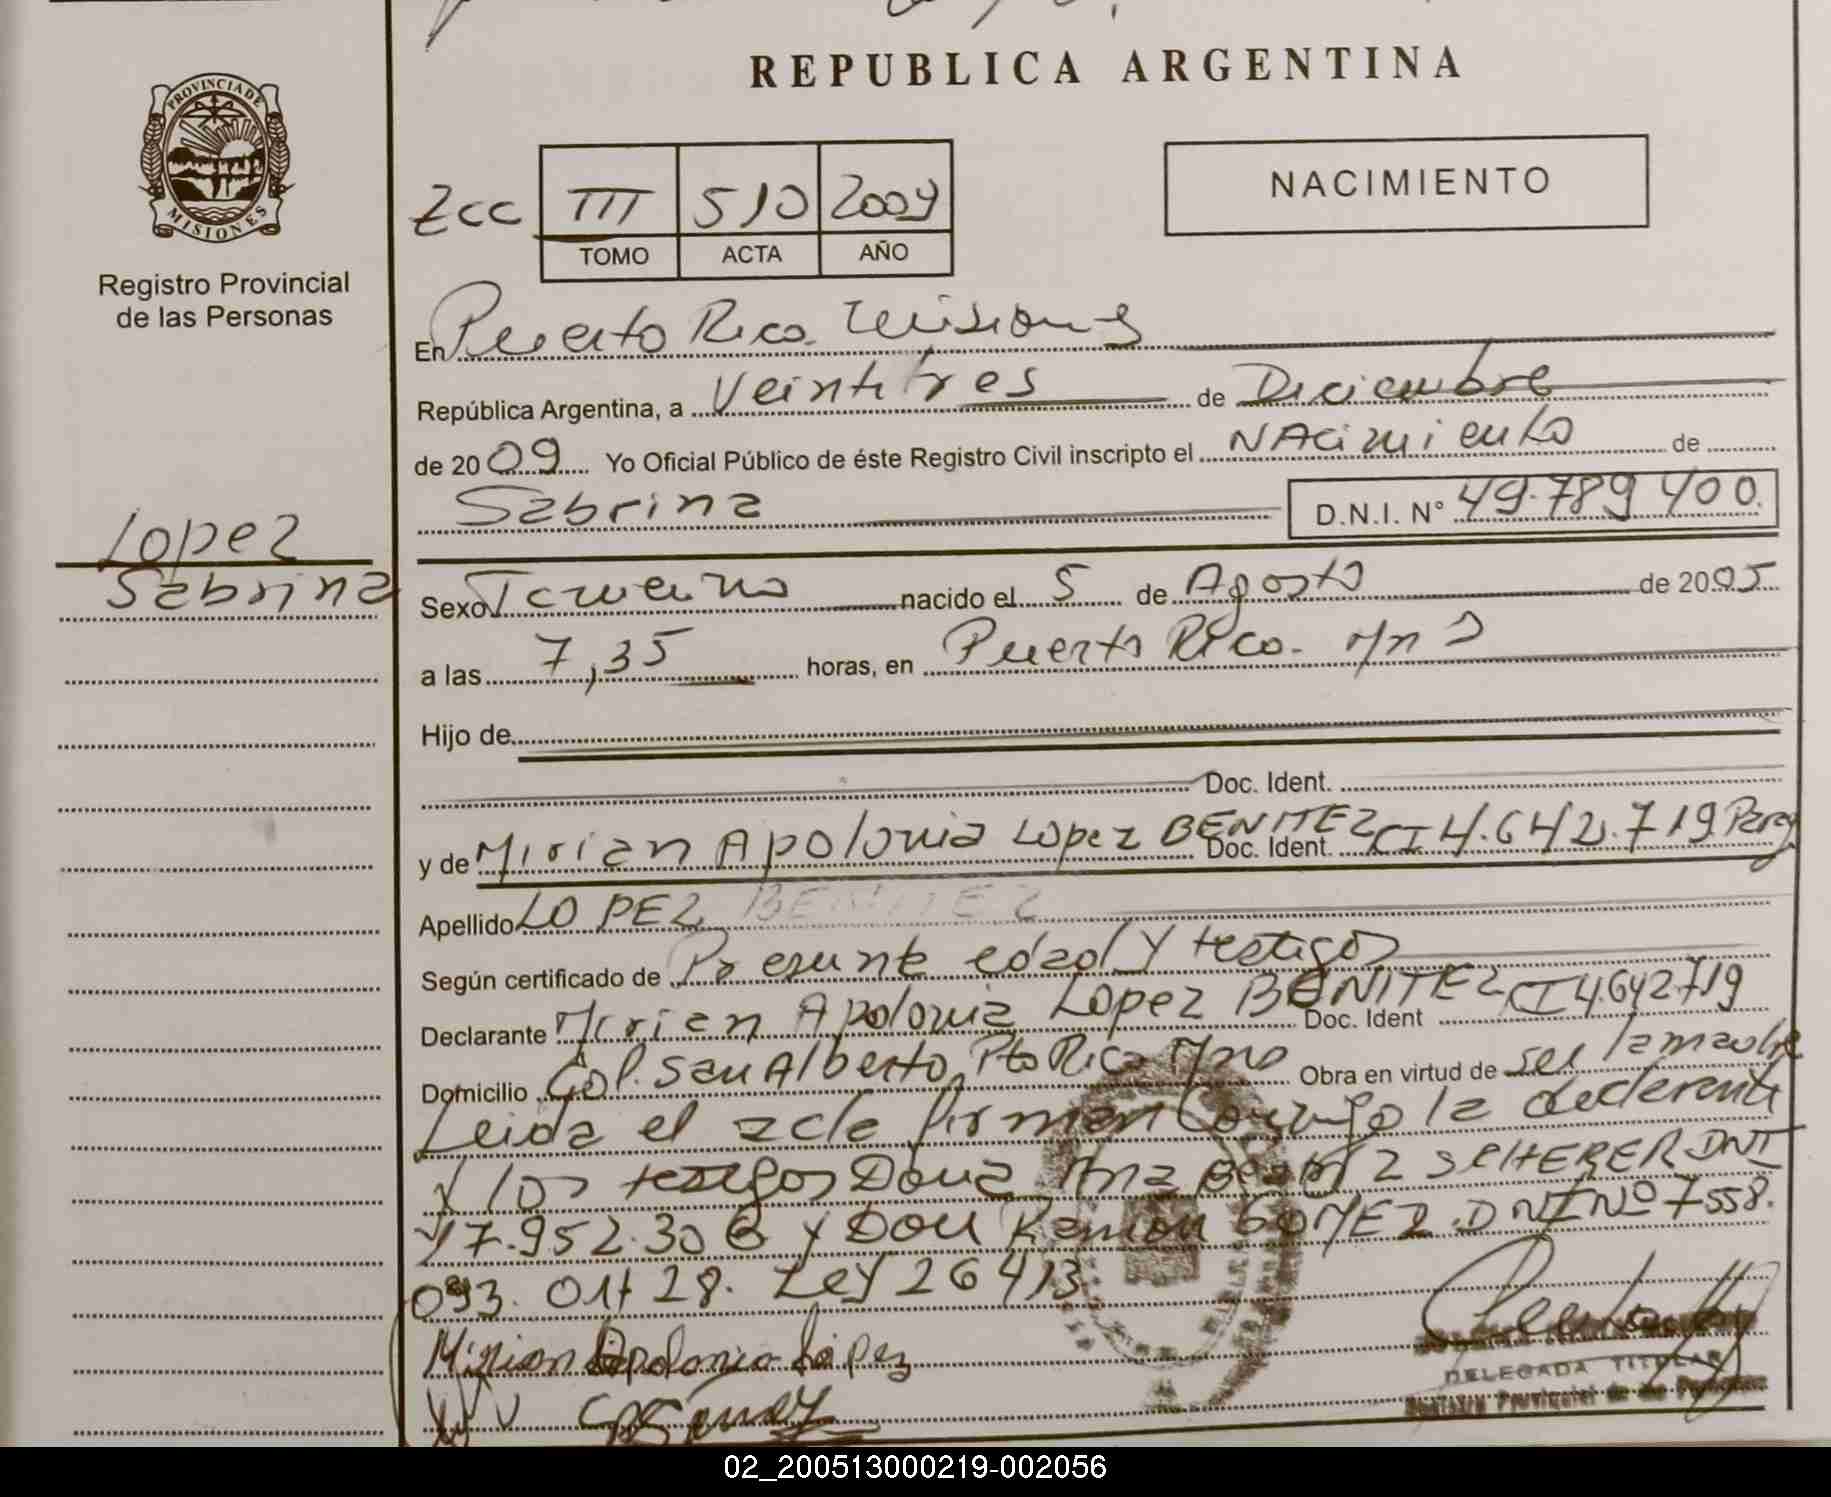 REPUBLICA ARGENTINA
PROVINCIA DE
MISIONES
Registro Provincial
de las Personas
Zcc III 510 2009
TOMO ACTA AÑO
NACIMIENTO
En Puerto Rico. Misiones
República Argentina, a Veintitres de Diciembre
de 2009 Yo Oficial Público de éste Registro Civil inscripto el NAcimiento de
Sabrina D.N.I. N° 49.789 400.
Lopez
Sabrina
Sexo Femenino nacido el 5 de Agosto de 2005
a las 7,35 horas, en Puerto Rico. Mns
Hijo de
Doc. Ident.
y de Mirian Apolonia Lopez BENITEZ Doc. Ident. CI 4.642.719 Parag
Apellido LOPEZ BENITEZ
Según certificado de Presunta edad y testigos
Declarante Mirian Apolonia Lopez BENITEZ Doc. Ident CI 4.642.719
Domicilio Col. San Alberto Pto Rico Mns Obra en virtud de ser la madre
Leida el acta firman Conmigo la declarante
y los testigos Dona Ana Beatriz SCHERER DNI
17.952.306 y Don Ramon GOMEZ. DNI Nº 7558.
093. Art 28. Ley 26413
Mirian Apolonia López
DELEGADA TITULAR
Provincial de las Personas
02_200513000219-002056